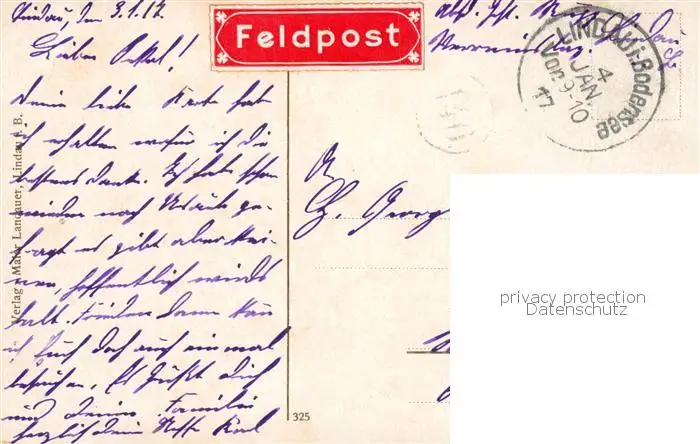 Lindau, den 3.1.17.
Lieber Onkel!
Deine liebe Karte hab
ich erhalten wofür ich Dir
bestens danke. Ich habe schon
wieder nach Urlaub ge-
fragt es gibt aber kei-
nen, hoffentlich wirds
bald Frieden dann kann
ich Euch doch auch einmal
besuchen. Es grüßt Dich
und Deine Familie
herzlich Dein Neffe Karl
Feldpost
LINDAU i. Bodensee
4
JAN.
Vor. 9-10
17
An
Georg
Verlag v. Maier Landauer, Lindau i. B.
325
privacy protection
Datenschutz